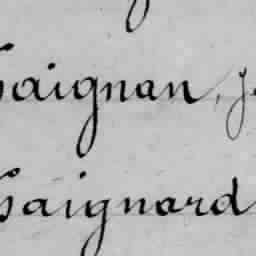 Saignan, J
Saignard